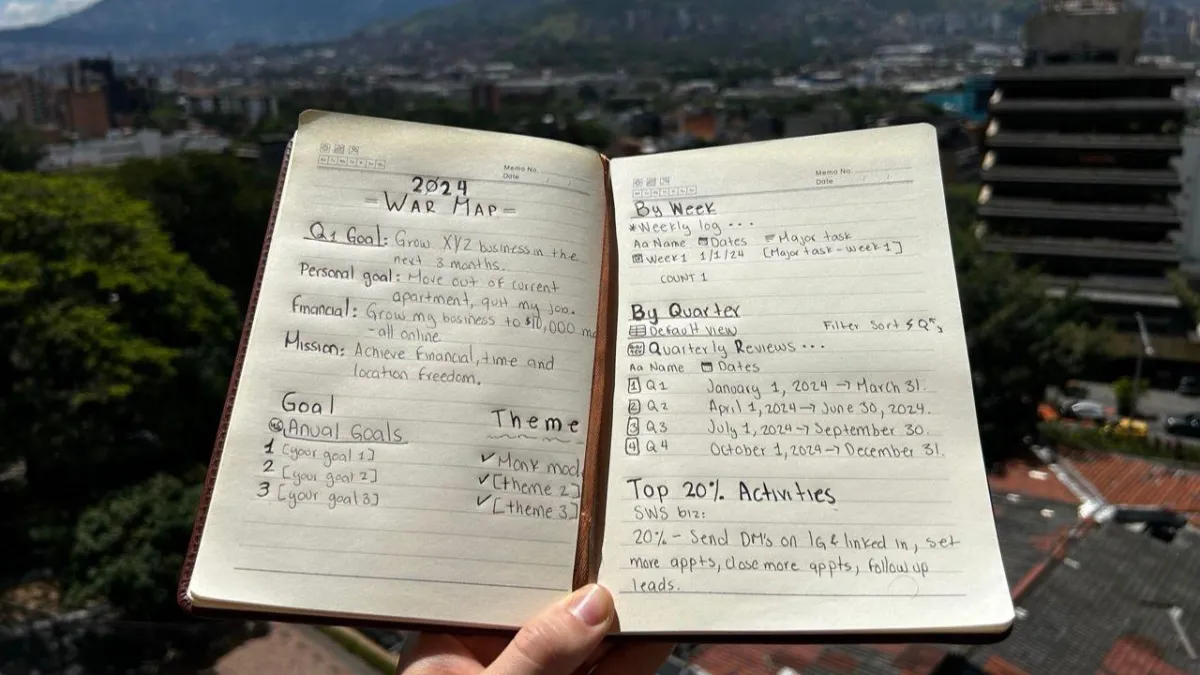 Memo No.
Date / /
2024
= WAR MAP =
Q1 Goal: Grow XYZ business in the
next 3 months.
Personal goal: Move out of current
apartment, quit my job.
Financial: Grow my business to $10,000 mo
- all online
Mission: Achieve financial, time and
location freedom.
Goal
Anual Goals
1 [your goal 1]
2 [your goal 2]
3 [your goal 3]
Theme
✓ Monk mod
✓ [theme 2]
✓ [theme 3]
Memo No.
Date / /
By Week
*Weekly log ...
Aa Name Dates Major task
Week 1 1/1/24 [Major task - week 1]
COUNT 1
By Quarter
Default view Filter Sort
Quarterly Reviews ...
Aa Name Dates
1 Q1 January 1, 2024 → March 31.
2 Q2 April 1, 2024 → June 30, 2024.
3 Q3 July 1, 2024 → September 30.
4 Q4 October 1, 2024 → December 31.
Top 20% Activities
SWS biz:
20% - Send DM's on IG & linked in, set
more appts, close more appts, follow up
leads.